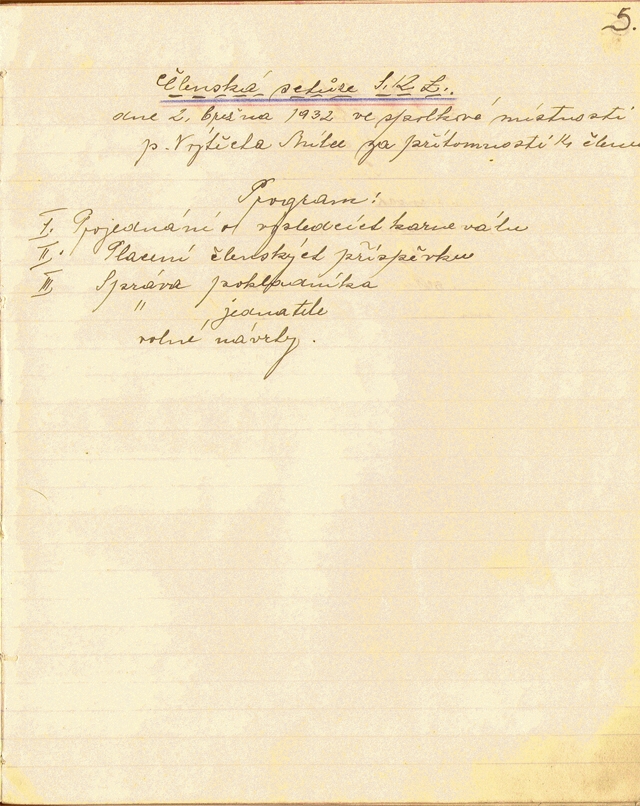 5.
Členská schůze S.K.L.
dne 2. března 1932 ve spolkové místnosti
p. Vojtěcha za přítomnosti 14 členů
Program:
I. Projednání o výsledcích karnevalu
II. Placení členských příspěvku
III Správa pokladníka
" jednatele
volné návrhy.